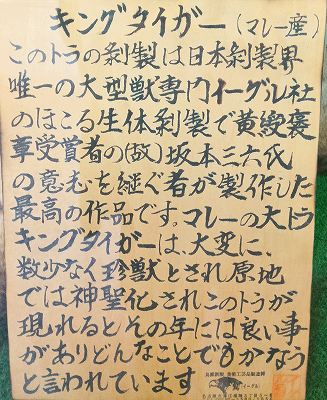 キングタイガー（マレー産）
このトラの剥製は日本剥製界
唯一の大型獣専門イーグル社
のほこる生体剥製で黄綬褒
章受賞者の(故)坂本三六氏
の意志を継ぐ者が製作した
最高の作品です。マレーの大トラ
キングタイガーは、大変に、
数少なく珍獣とされ原地
では神聖化されこのトラが
現れるとその年には良い事
がありどんなことでもかなう
と言われています